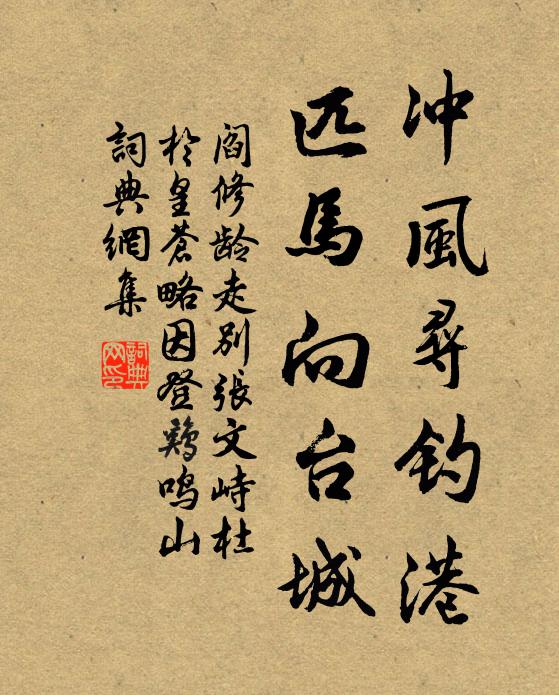 冲風尋釣港
匹馬向台城
阎修龄走别張文峙杜
於皇蒼略因登鶏鸣山
詞典網集
詞典網印